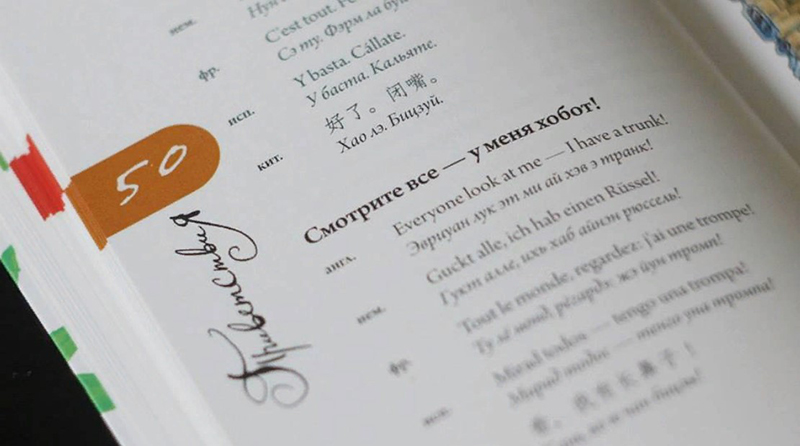 нем.
C'est tout.
Сэ ту. Фэрм ла
фр.
Y basta. Cállate.
У баста. Кальяте.
исп.
好了。闭嘴。
Хао лэ. Бицзуй.
кит.
50
Приветствия
Смотрите все — у меня хобот!
Everyone look at me — I have a trunk!
Эвриуан лук эт ми ай хэв э транк!
англ.
Guckt alle, ich hab einen Rüssel!
Гукт алле, ихь хаб айнэн рюссель!
нем.
Tout le monde, regardez: j'ai une trompe!
Ту лё монд, рёгардэ: жэ йун тромп!
фр.
Mirad todos — tengo una trompa!
Мирад тодос — тенго уна тромпа!
исп.